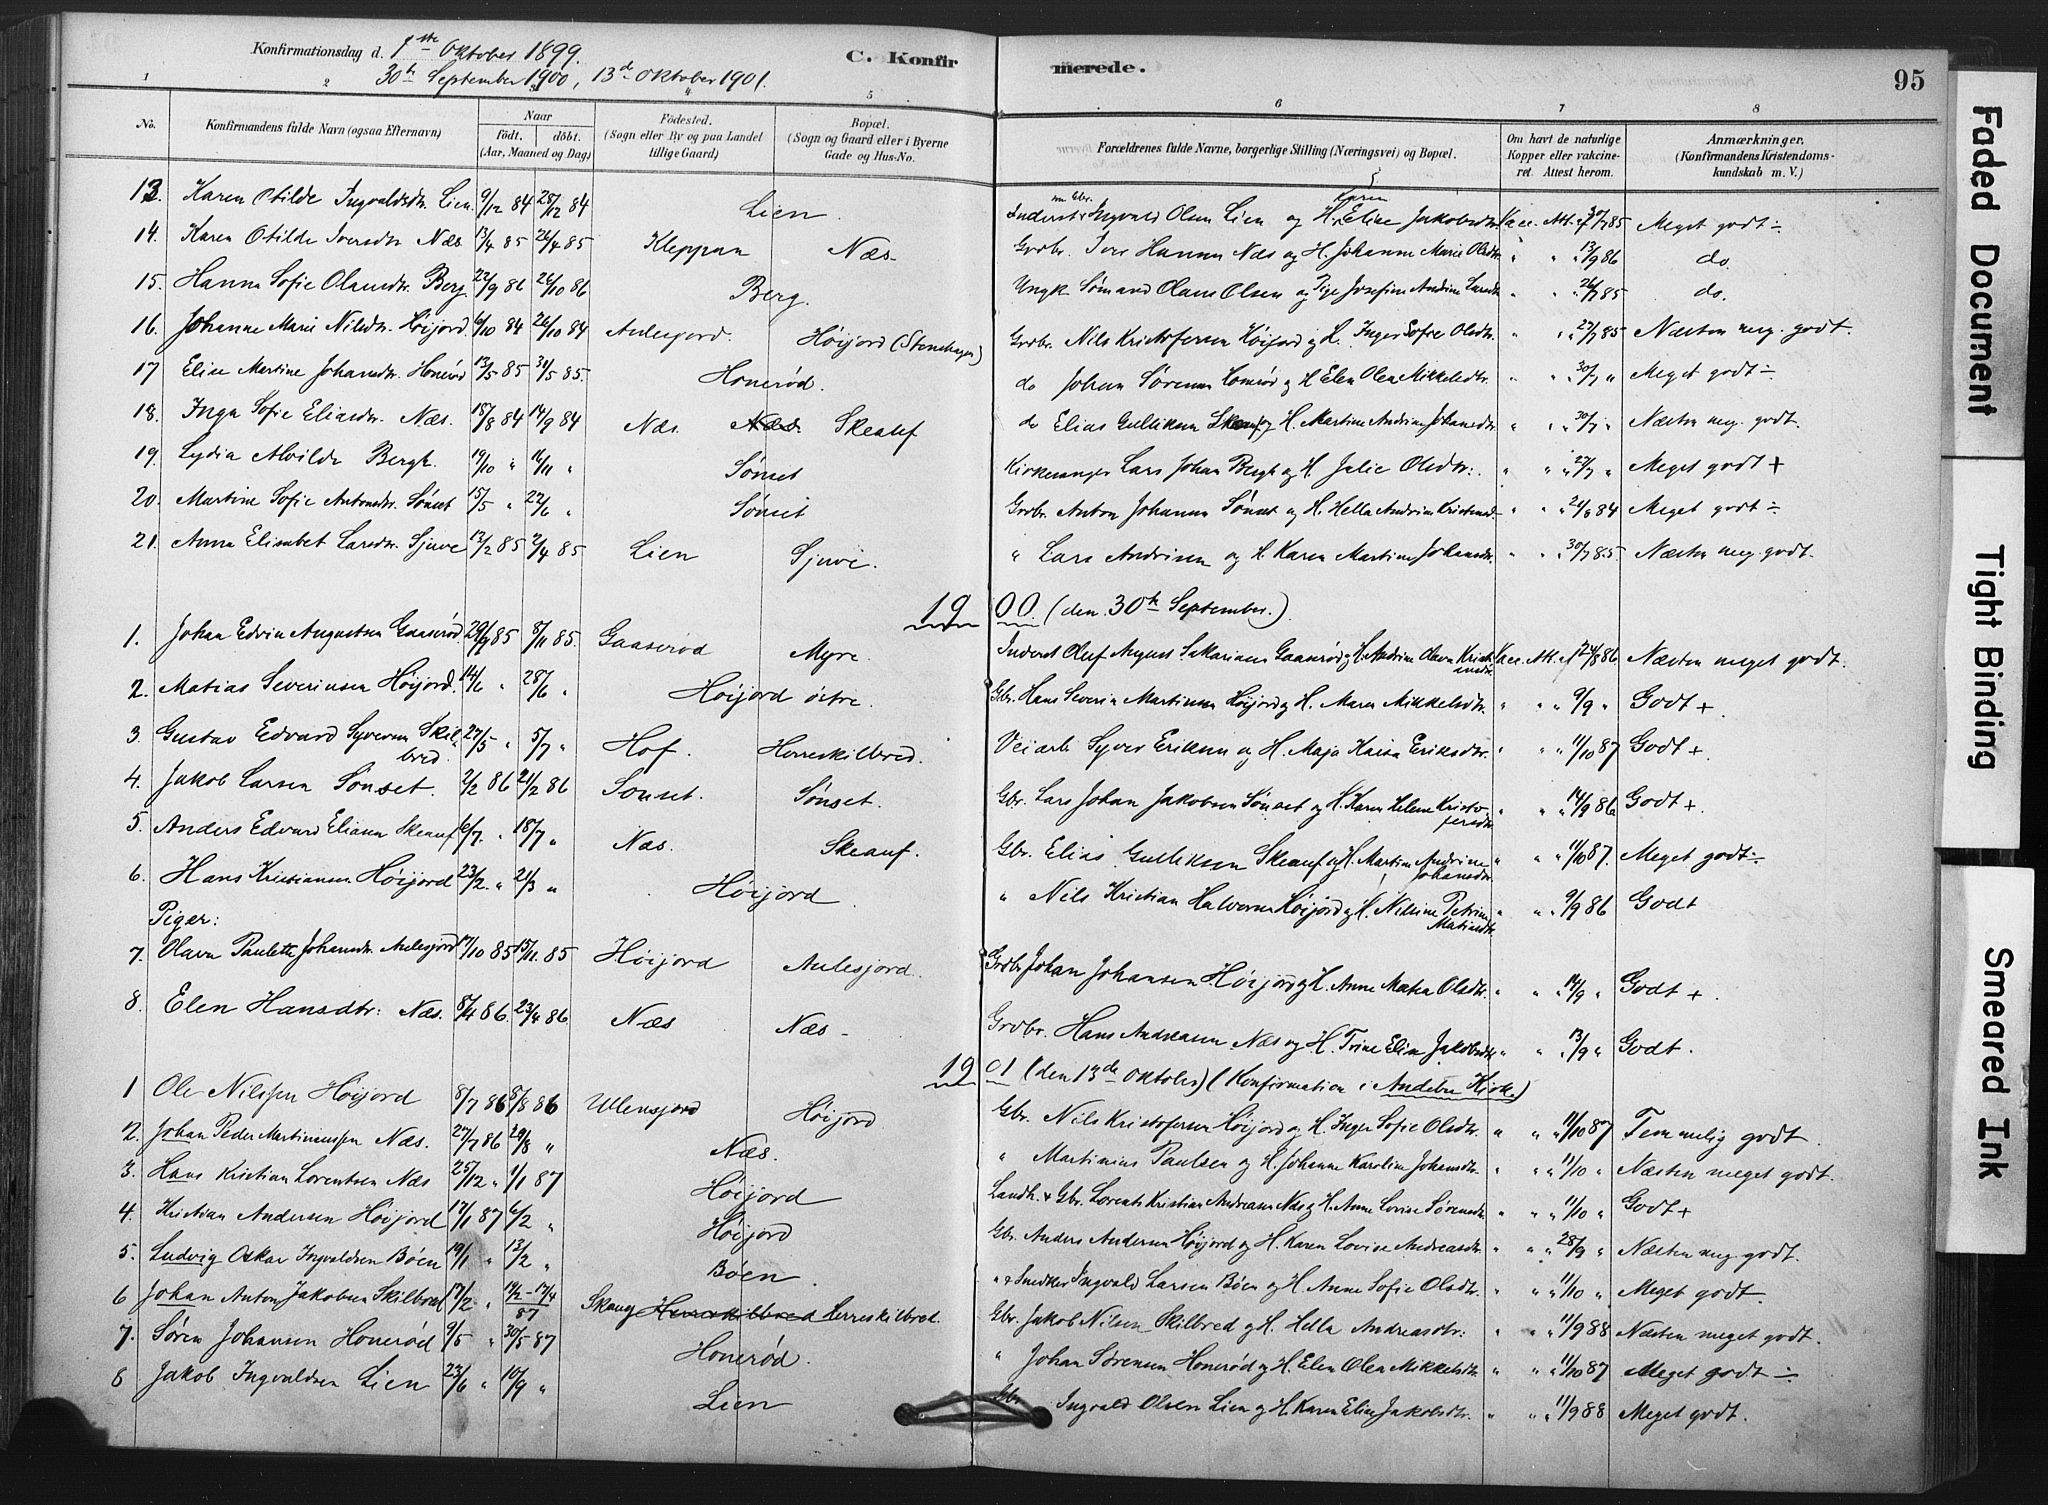 Konfirmationsdag d. 1ste Oktober 1899.
30te September 1900, 13de Oktober 1901.
C. Konfirmerede.
95
1 2 3 4 5 6 7 8
No. Konfirmandens fulde Navn (ogsaa Efternavn) Naar født. døbt. (Aar, Maaned og Dag) Fødested. (Sogn eller By og paa Landet tillige Gaard) Bopæl. (Sogn og Gaard eller i Byerne Gade og Hus-No. Forældrenes fulde Navne, borgerlige Stilling (Næringsvei) og Bopæl. Om havt de naturlige Kopper eller vakcineret. Attest herom. Anmærkninger. (Konfirmandens Kristendomskundskab m. V.)
13. Karen Otilde Ingvaldsdtr. Lien 9/12 84 28/12 84 Lien. Inderst Ingvald Olsen Lien og H. Karen Eline Jakobsdtr. Vacc. Att. 30/7 85 Meget godt ÷
14. Karen Otilde Iversdtr Næs 13/4 85 26/4 85 Kleppan Næs Grdbr. Iver Hansen Næs og H. Johanne Marie Olsdtr " " 13/9 86 do.
15. Hanna Sofie Olausdtr. Berg 23/9 86 26/10 86 Berg. Ungk. Sømand Olaus Olsen og Pige Josefine Andine Larsdtr " " 26/7 85 do.
16. Johanne Marie Nilsdtr. Høijord 6/10 84 26/10 84 Aulesjord. Høijord (Stenhagen) Grdbr. Nils Kristofersen Høijord og H. Inger Sofie Olsdtr. " " 23/7 85 Næsten meg. godt.
17 Elise Martine Johansdtr. Honerød 13/5 85 31/5 85. Honerød. do Johan Sørensen Honerød og H Elen Olea Mikkelsdtr. " " 30/7 " Meget godt ÷
18. Inga Sofie Eliasdtr. Næs. 18/8 84 14/9 84 Næs. Skeauf do Elias Gulliksen Skeauf og H. Martine Andrine Johansdtr " " 30/7 " Næsten meg. godt.
19. Lydia Alvilde Bergh. 19/10 " 16/11 " Sønset Kirkesanger Lars Johan Bergh og H. Julie Olsdtr: " " 27/7 " Meget godt +
20. Martine Sofie Antonsdtr. Sønset 15/5 " 22/6 " Sønset Grdbr. Anton Johannes Sønset og H. Hella Andrine Kristensd. " " 21/8 84 Meget godt ÷
21. Anna Elisabet Larsdtr. Sjuve 13/2 85 2/4 85 Lien Sjuve. " Lars Andersen og H. Karen Martine Johansdtr. " " 30/7 85. Næsten meg. godt.
1900 (den 30te September.)
1. Johan Edvin Augustsen Gaaserød 29/9 85 8/11 85. Gaaserød Myre. Inderst Oluf August Sakariasen Gaaserød og H. Andrine Olava Kristiansdtr Vacc. Att. 24/8 86 Næsten meget godt.
2. Matias Severinsen Høijord. 14/6 " 28/6 " Høijord østre. Gbr. Hans Severin Martinsen Høijord og H. Maren Mikkelsdtr. " " 9/9 " Godt +.
3. Gustav Edvard Syversen Skilbred. 27/5 " 5/7 " Hof. Herreskilbred. Veiarb. Syver Eriksen og H. Maja Kaisa Eriksdtr. " " 11/10 87 Godt +.
4. Jakob Larsen Sønset. 2/2 86 21/2 86 Sønset. Sønset. Gbr. Lars Johan Jakobsen Sønset og H. Karen Helene Kristofersdtr. " " 14/9 86 Godt +.
5. Anders Edvard Eliasen Skeauf 6/7. " 18/7 " Næs. Skeauf. Gbr. Elias Gulliksen Skeauf og H. Martine Andrine Johansdtr. " " 11/10 87. Meget godt ÷
6. Hans Kristiansen Høijord 23/2. " 21/3 " Høijord. " Nils Kristian Halvorsen Høijord og H. Nilsine Petrine Matiasdtr. " " 9/9 86 Godt
Piger:
7. Olava Paulette Johansdtr. Aulesjord 17/10 85 15/11. 85 Høijord Aulesjord. Grdbr Johan Johansen Høijord og H. Anne Matea Olsdtr. " " 14/9 " Godt +.
8. Elen Hansdtr: Næs. 8/4 86. 23/4 86 Næs Næs - Grdbr. Hans Andreassen Næs og H. Trine Elise Jakobsdtr " " 13/9 " Godt.
1901 (den 13de Oktober) (Konfirmation i Andebu Kirke.)
1 Ole Nilssen Høijord 8/7 86 8/8 86 Ulensjord Høijord Gbr. Nils Kristofersen Høijord og H. Inger Sofie Olsdtr. " " 11/10 87 Temmelig godt.
2. Johan Peder Martiniussen Næs. 27/7 86 29/8 " Næs. " Martinius Paulsen og H. Johanne Karoline Johansdtr. " " 11/10 " Næsten meget godt.
3. Hans Kristian Lorentsen Næs 25/12 " 1/1 87 Høijord Landh. & Gbr. Lorents Kristian Andreasen Næs og H. Anne Lovise Sørensdtr " " 11/10 " Godt +
4. Kristian Andersen Høijord 17/1 87 6/2 " Høijord Gbr. Anders Andersen Høijord og H. Karen Lovise Andreasdtr. " " 28/9 " Næsten meg. godt.
5. Ludvig Oskar Ingvaldsen Bøen 19/1 " 13/2 " Bøen. " & Snedker Ingvald Larsen Bøen og H. Anne Sofie Olsdtr. " " 11/10 " Meget godt.
6 Johan Anton Jakobsen Skilbred 17/2 " 19/2 - 17/4 87 Skaug Herreskilbred Herreskilbred. Gbr. Jakob Nilsen Skilbred og H. Hella Andreasdtr: " " 11/9 88 Næsten meget godt.
7. Søren Johansen Honerød 9/5 " 30/5 87 Honerød. " Johan Sørensen Honerød og H. Elen Olea Mikkelsdtr " " 11/10 87 Meget godt ÷
8 Jakob Ingvaldsen Lien 23/6 " 10/9 " Lien Gbr Ingvald Olsen Lien og H Karen Eline Jakobsdtr. " " 11/9 88 Meget godt.
Faded Document
Tight Binding
Smeared Ink